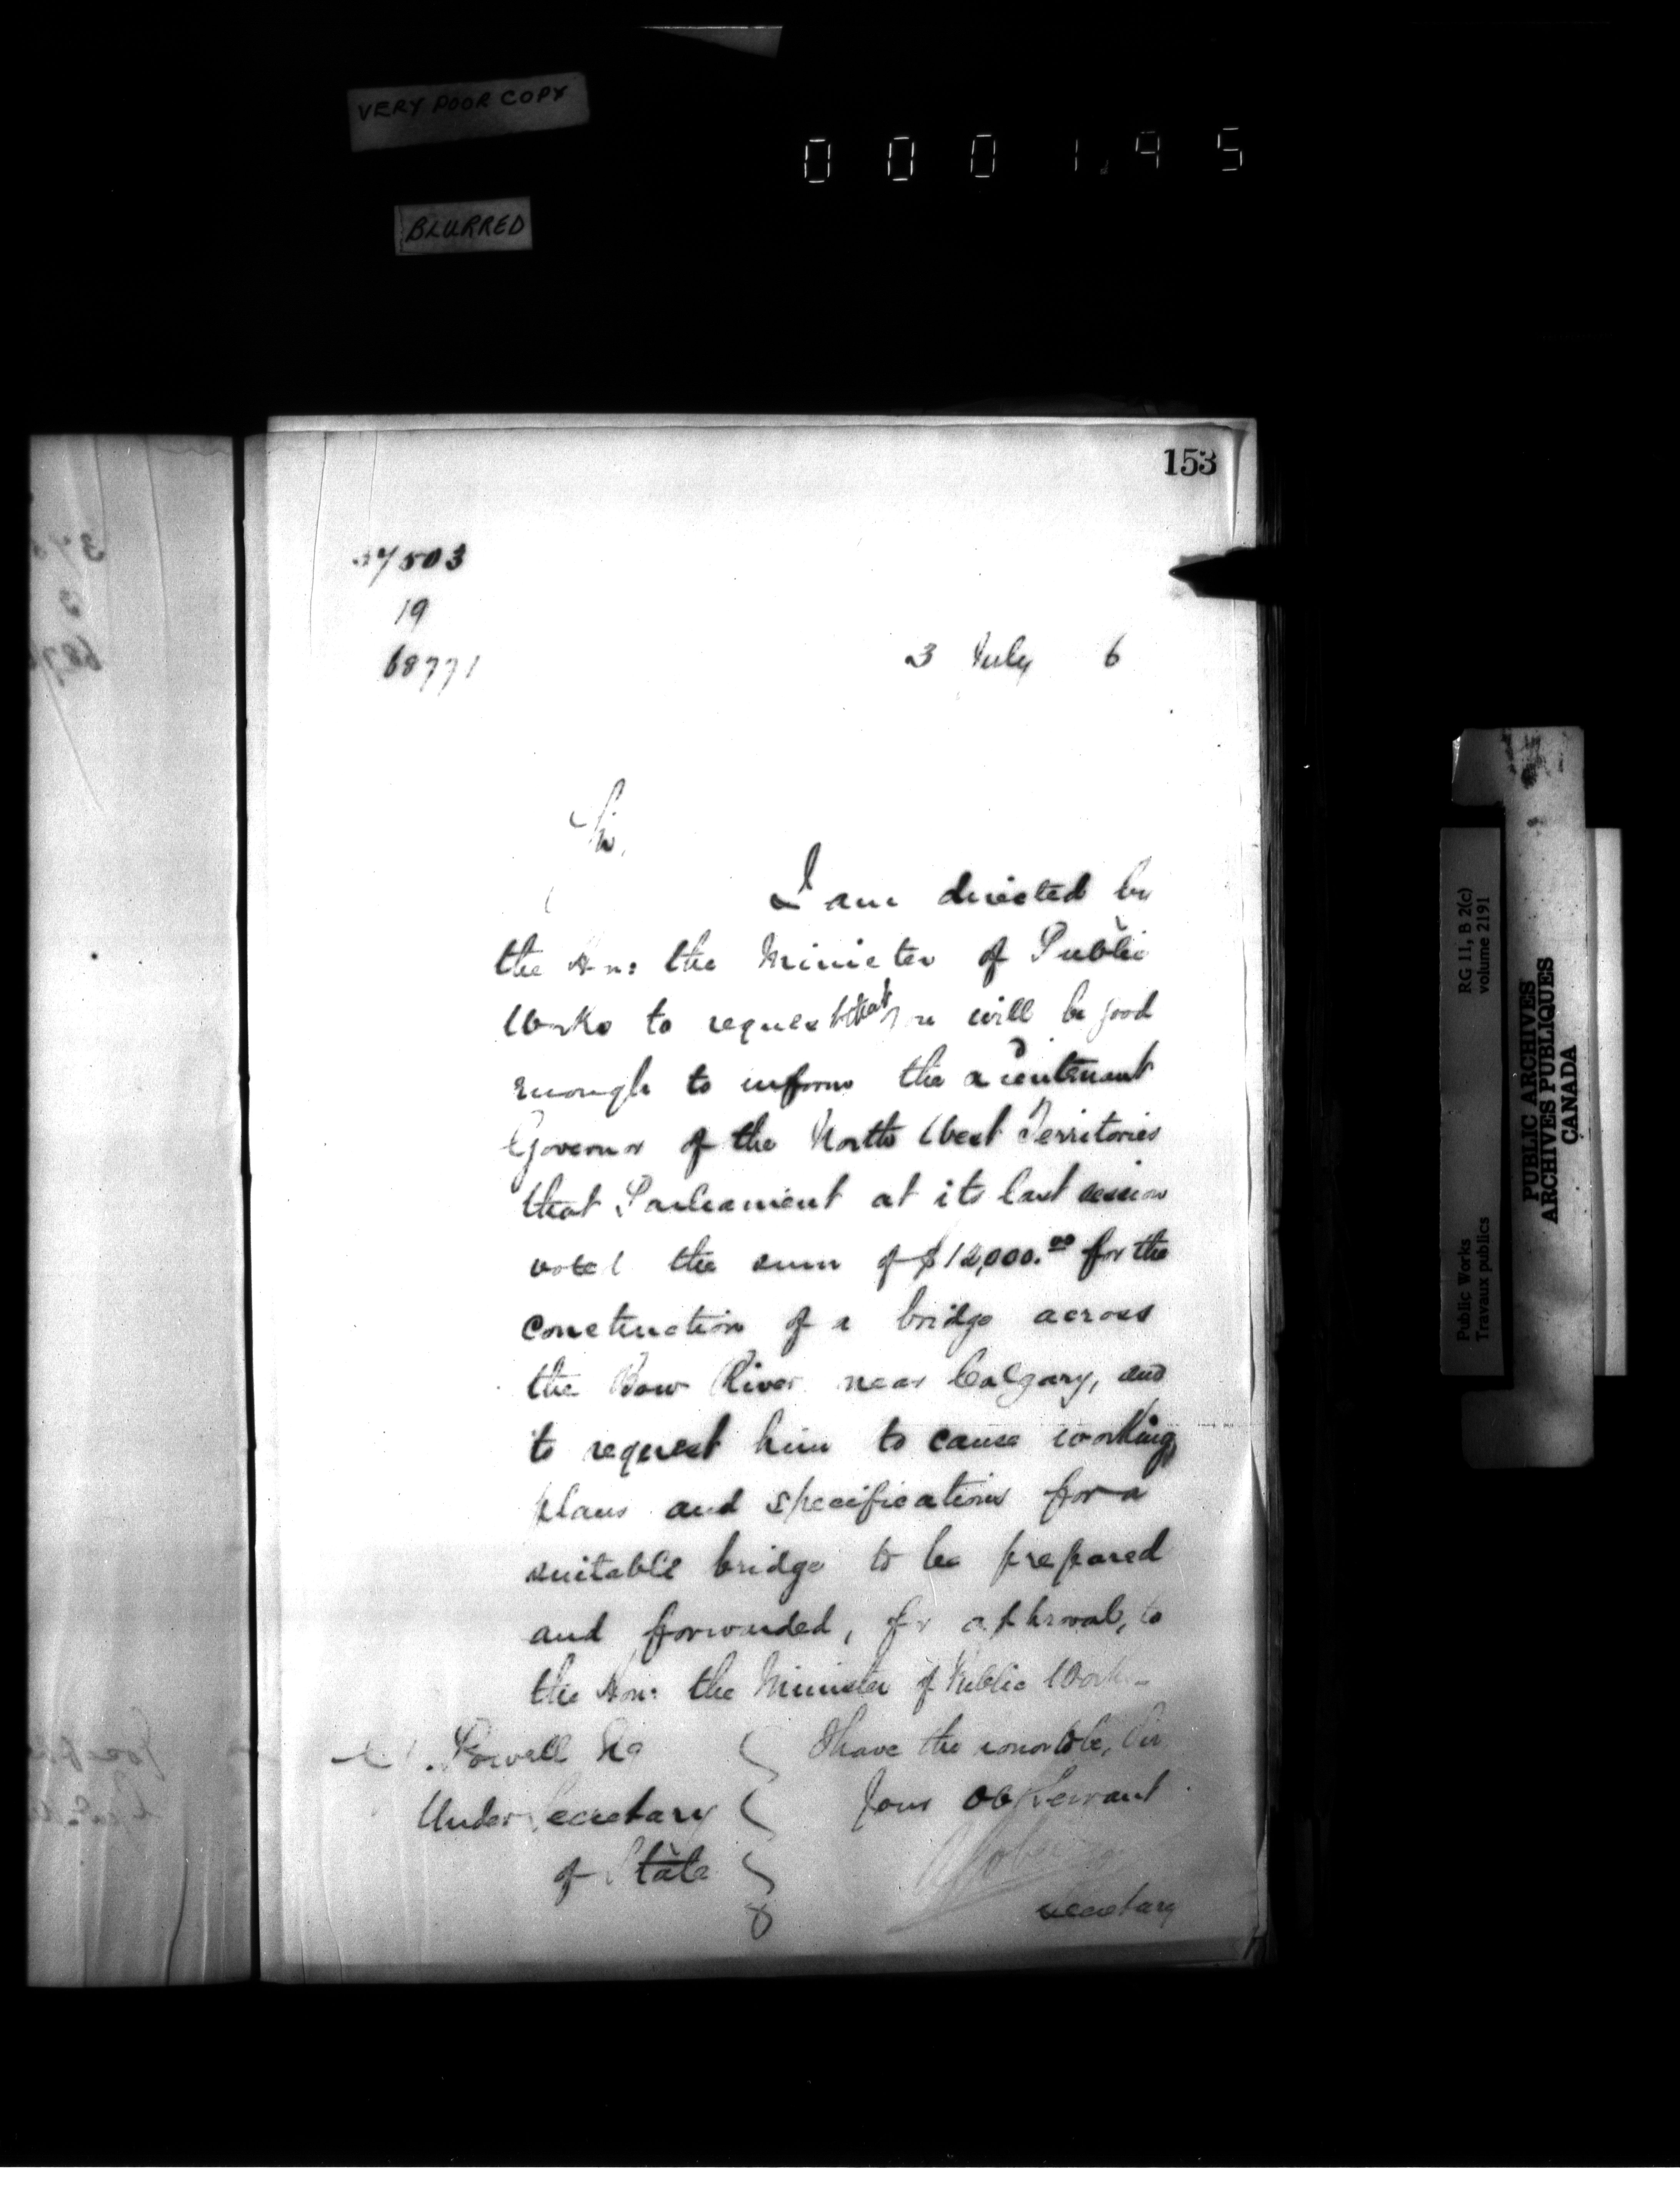 VERY POOR COPY
0 0 0 1 9 5
BLURRED
153
37503
19
68771
3 July 6
Sir,
I am directed by
the Hon: the Minister of Public
Works to request that you will be good
enough to inform the Lieutenant
Governor of the North West Territories
that Parliament at its last session
voted the sum of $12,000.00 for the
construction of a bridge across
the Bow River near Calgary, and
to request him to cause working
plans and specifications for a
suitable bridge to be prepared
and forwarded, for approval, to
the Hon: the Minister of Public Works
Powell Esq
I have the honor to be, Sir
Under Secretary
Your Ob Servant
of State
Secretary
RG 11, B 2(c)
volume 2191
Public Works
Travaux publics
PUBLIC ARCHIVES
ARCHIVES PUBLIQUES
CANADA